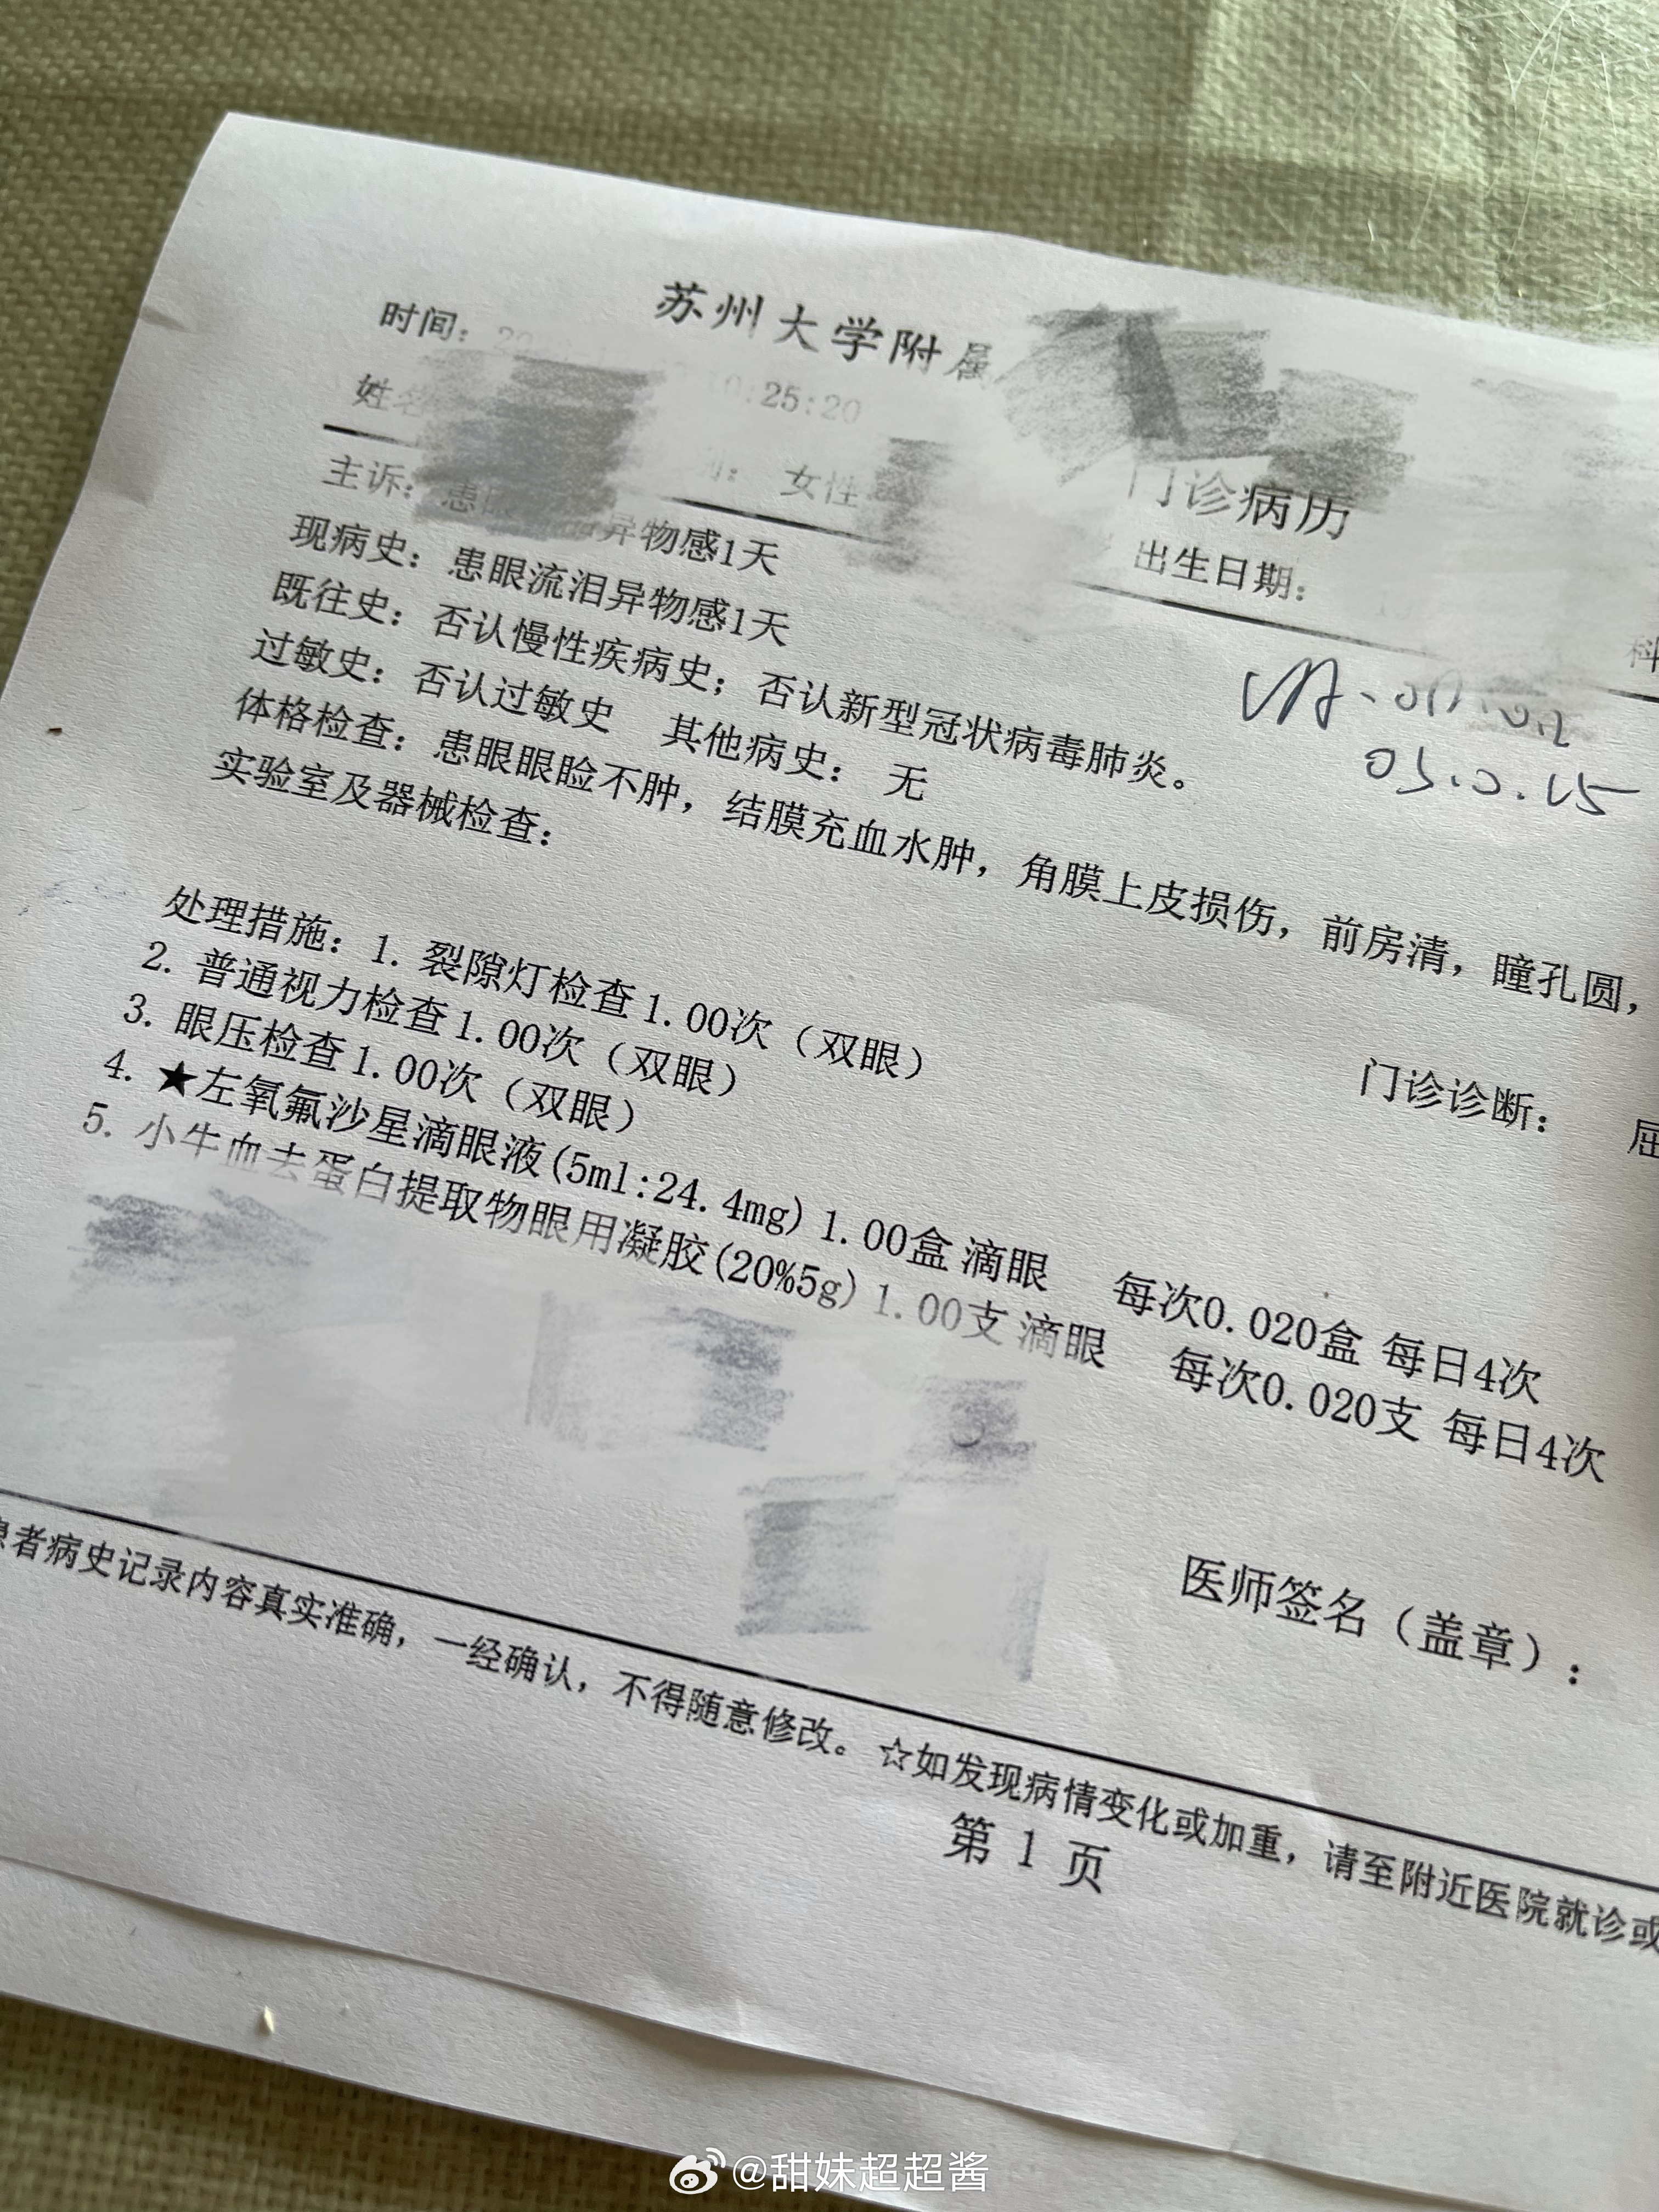 苏州大学附属
时间: 10:25:20
门诊病历
姓名 女性 出生日期: 科
主诉: 患眼 异物感1天
现病史: 患眼流泪异物感1天
既往史: 否认慢性疾病史; 否认新型冠状病毒肺炎。
过敏史: 否认过敏史 其他病史: 无
体格检查: 患眼眼睑不肿, 结膜充血水肿, 角膜上皮损伤, 前房清, 瞳孔圆,
实验室及器械检查:
门诊诊断: 屈
处理措施: 1. 裂隙灯检查1.00次 (双眼)
2. 普通视力检查1.00次 (双眼)
3. 眼压检查1.00次 (双眼)
4. ★左氧氟沙星滴眼液(5ml:24.4mg) 1.00盒 滴眼 每次0.020盒 每日4次
5. 小牛血去蛋白提取物眼用凝胶(20%5g) 1.00支 滴眼 每次0.020支 每日4次
医师签名 (盖章) :
患者病史记录内容真实准确, 一经确认, 不得随意修改。☆如发现病情变化或加重, 请至附近医院就诊或
第 1 页
@甜妹超超酱